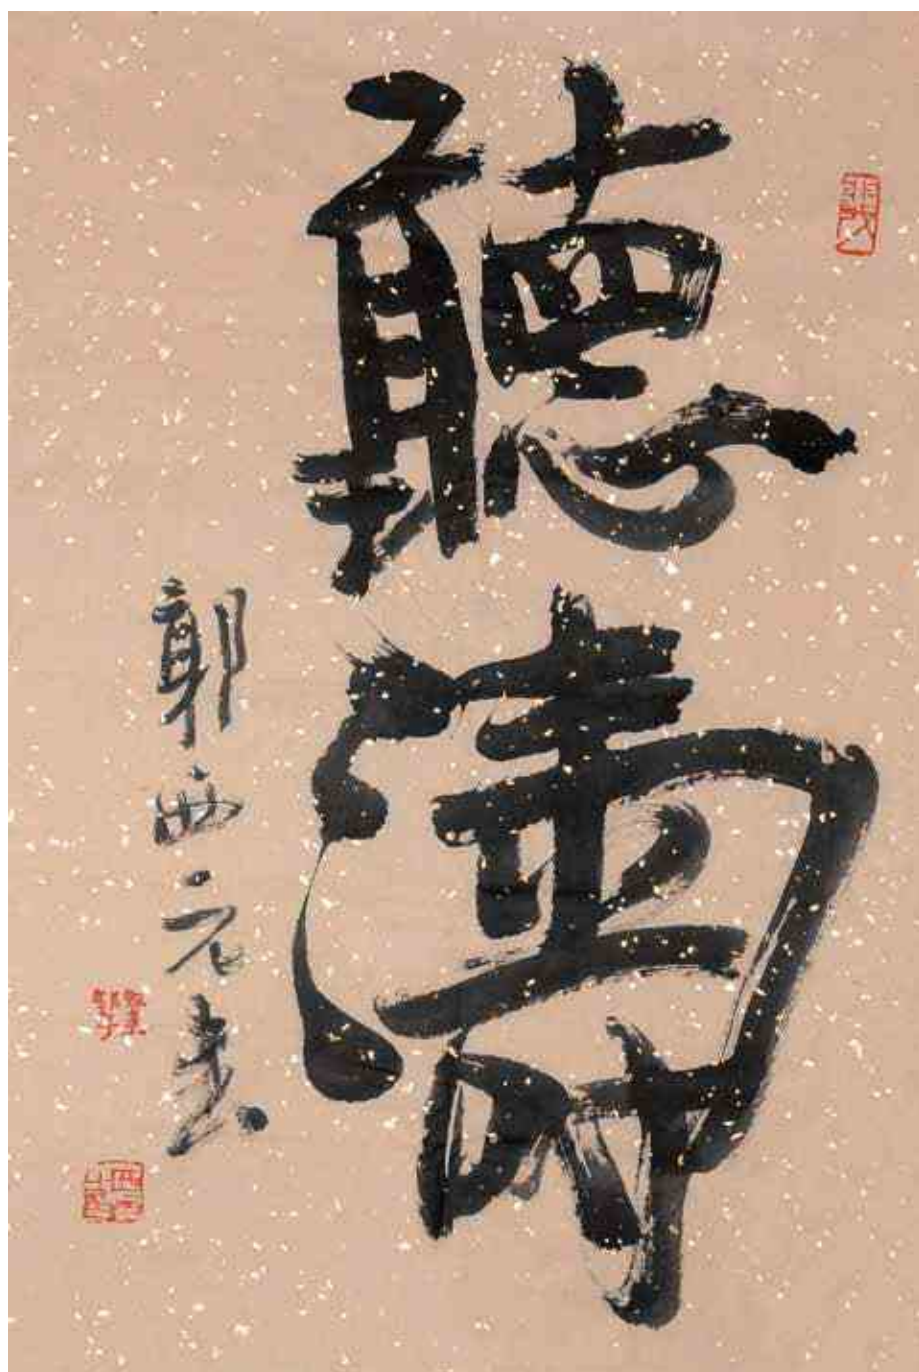 聽濤
郭西元書